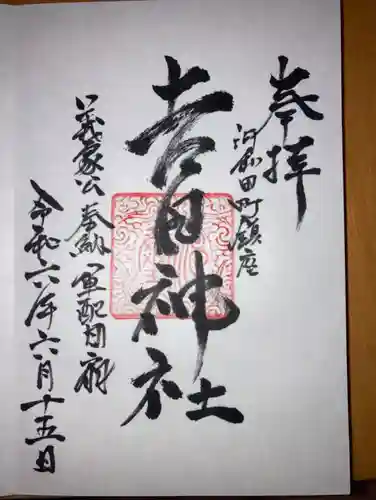 奉拝
河和田町鎮座
吉田神社
義家公 奉納 軍配団扇
令和六年六月十五日